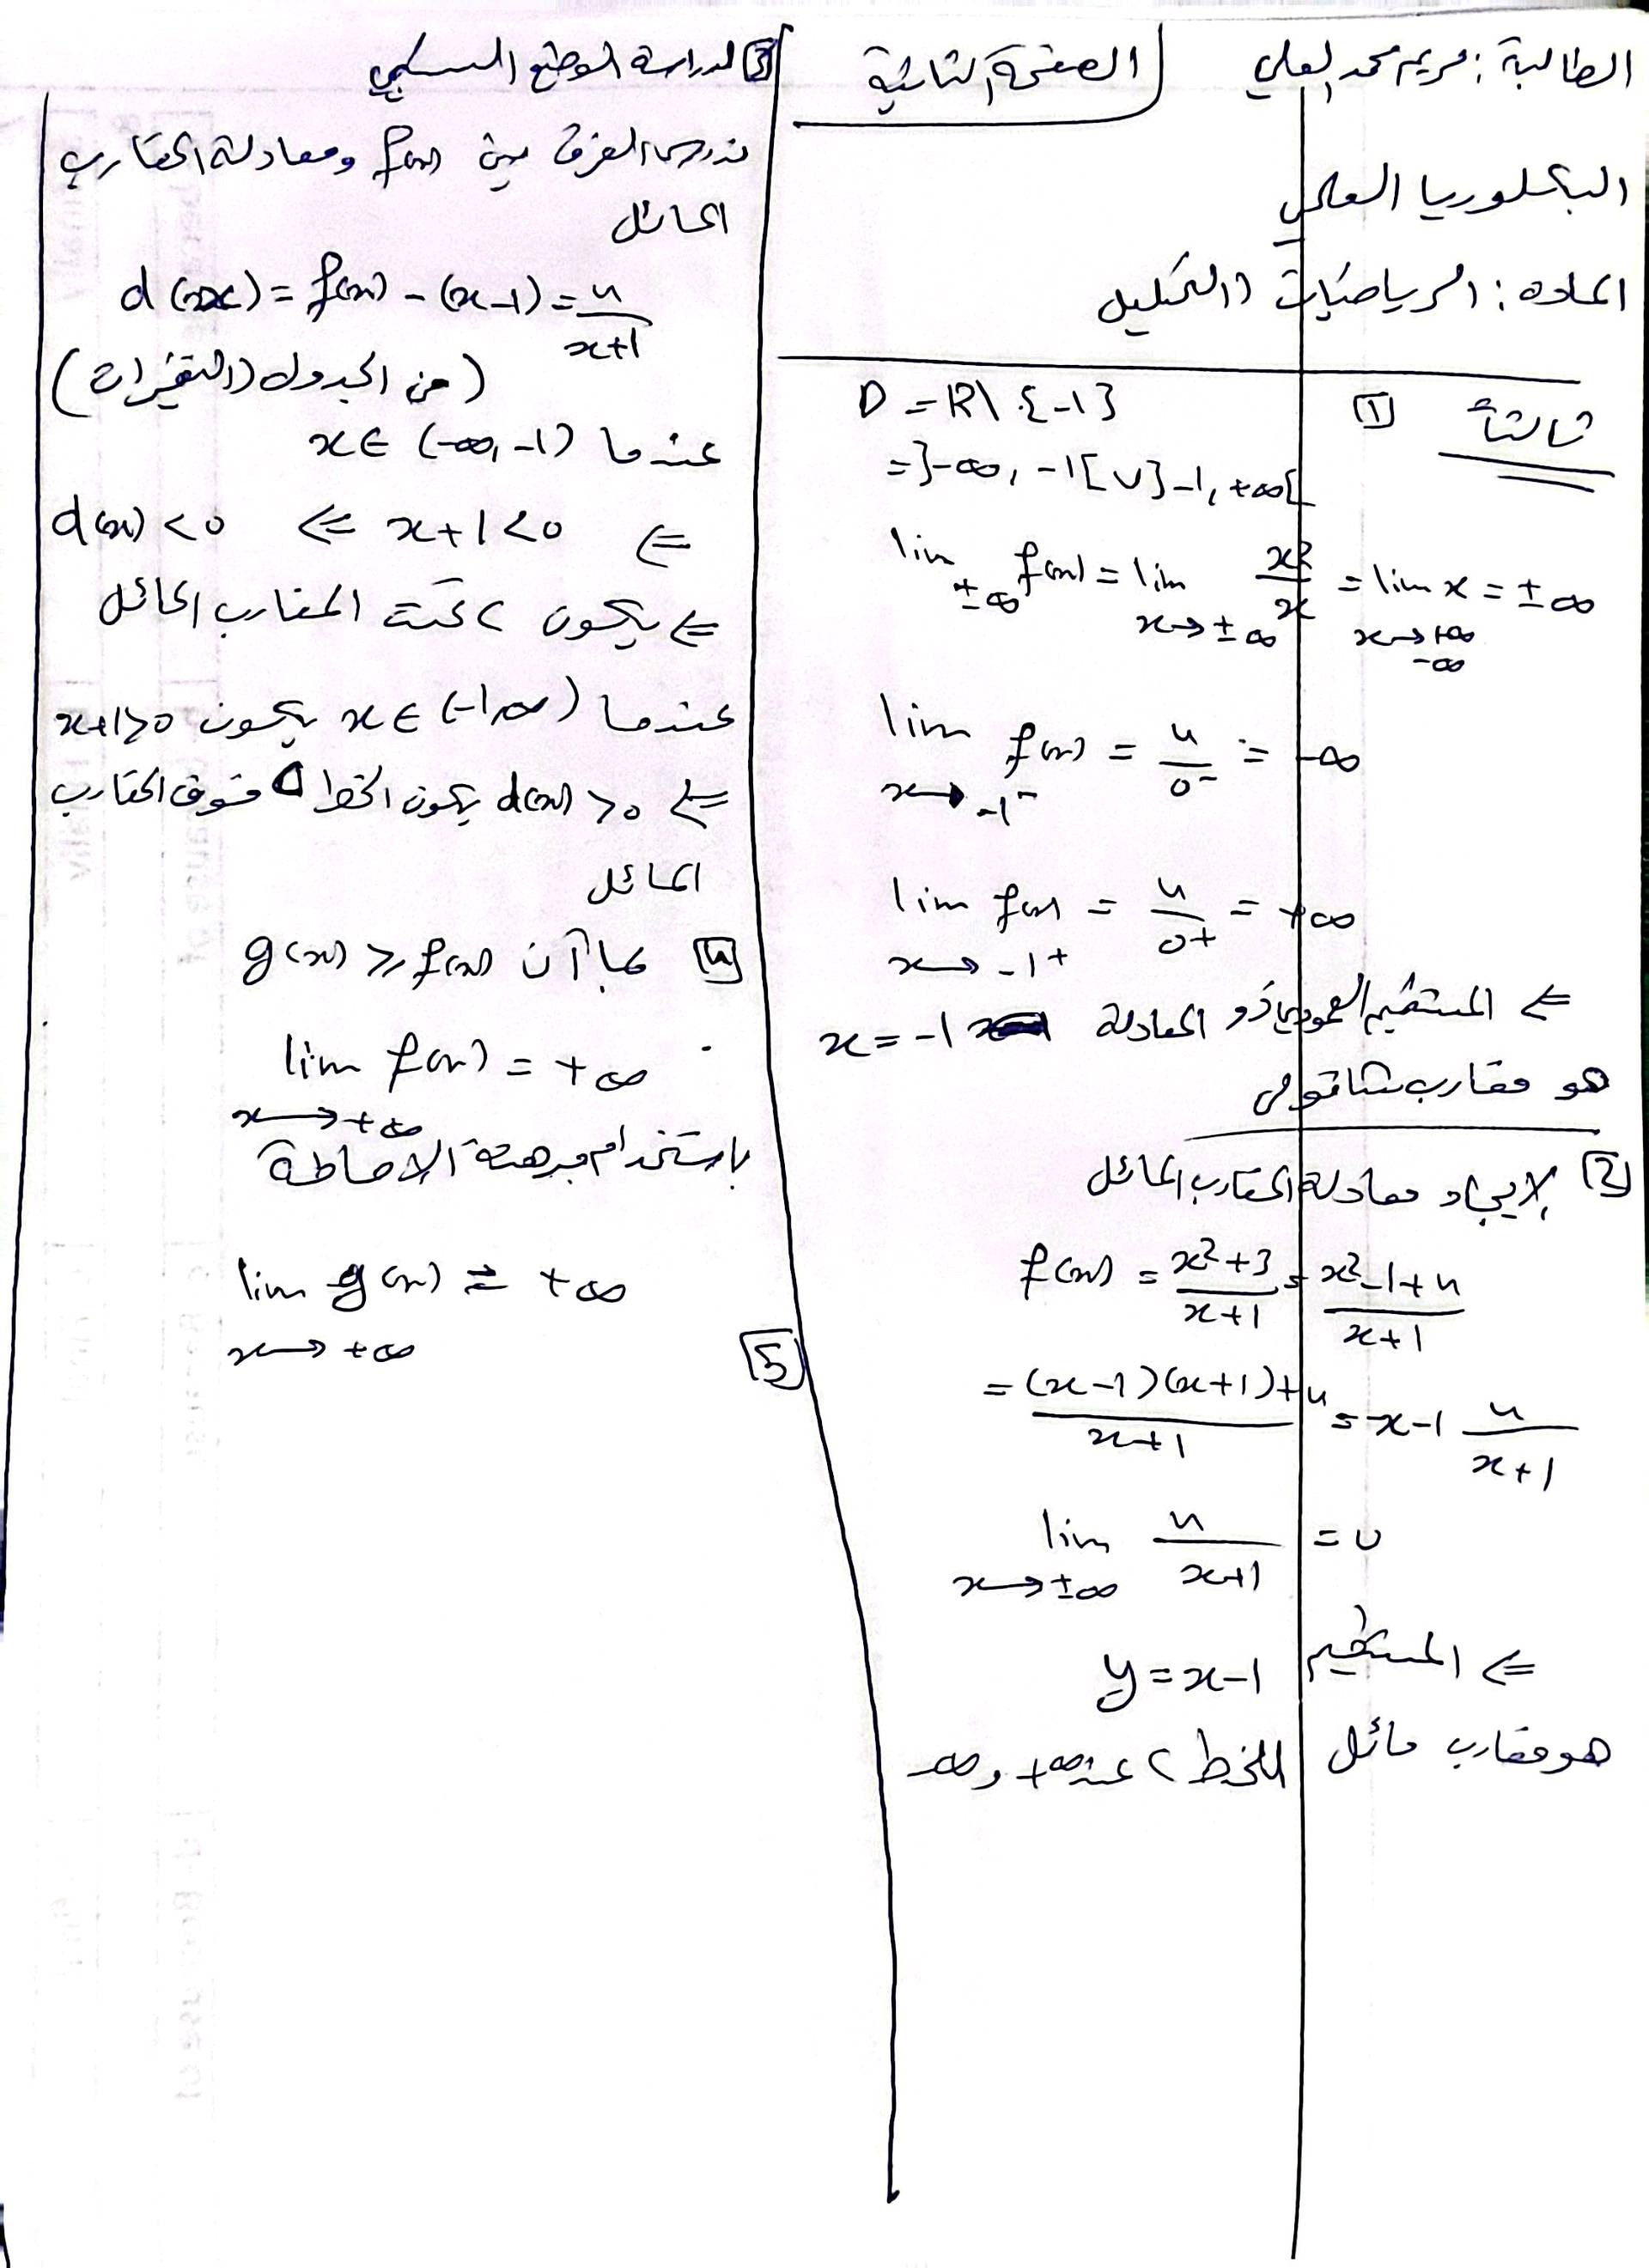 الطالبة : مريم محمد العلي
الصفحة الثانية
البكلوريا العلمي
الماده : الرياضيات (التحليل
ثالثأ
1
D = R\ {-1}
= ]-∞, -1[ U ]-1, +∞[
lim ±∞ f(x) = lim x→±∞ x²/x = lim x→+∞ -∞ x = ±∞
lim x→-1⁻ f(x) = 4/0⁻ = -∞
lim x→-1⁺ f(x) = 4/0+ = +∞
⇐ المستقيم العمودي ذو المعادلة x = -1
هو مقارب شاقولي
2 لايجاد معادلة المقارب المائل
f(x) = x²+3/x+1 = x²-1+4/x+1
= (x-1)(x+1)+4/x+1 = x-1 4/x+1
lim x→±∞ 4/x+1 = 0
⇐ المستقيم y = x-1
هو مقارب مائل للخط C عند +∞ و -∞
3 لدراسة الوضع النسبي
ندرس الفرق بين f(x) ومعادلة المقارب
المائل
d(x) = f(x) - (x-1) = 4/x+1
(من الجدول (التغيرات)
عندما x ∈ (-∞, -1)
⇐ x+1<0 ⇐ d(x) <0
⇐ يكون C تحت المقارب المائل
عندما x ∈ (-1,∞) يكون x+1>0
⇐ d(x) >0 يكون الخط C فوق المقارب
المائل
4 بما أن g(x) ≥ f(x)
lim x→+∞ f(x) = +∞
باستخدام مبرهنة الاحاطة
lim x→+∞ g(x) = +∞
5